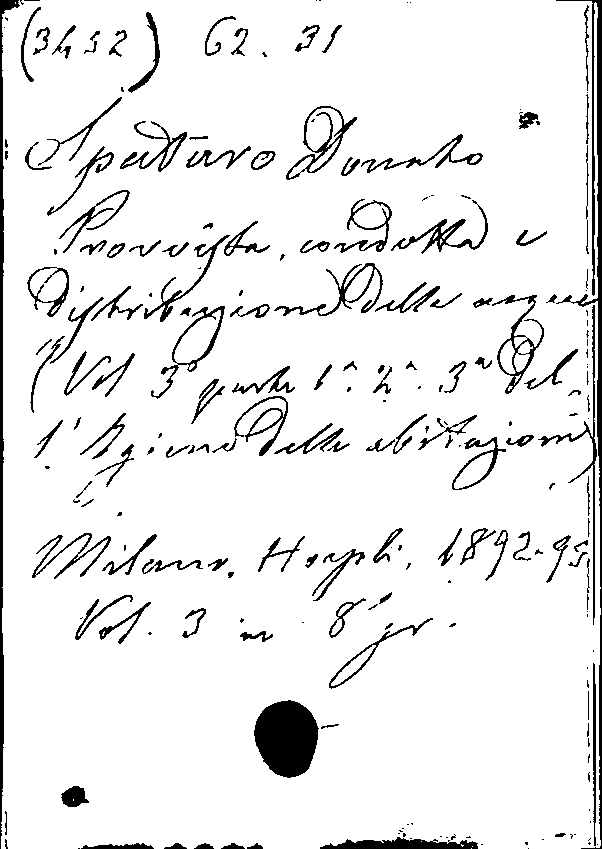 (3452) 62. 31
Spataro Donato
Provvista, condotta e
distribuzione delle acque
(Vol 3° parte 1ª. 2ª. 3ª del-
l'Igiene delle abitazioni)
Milano, Hoepli, 1892-95
Vol. 3 in 8° gr.